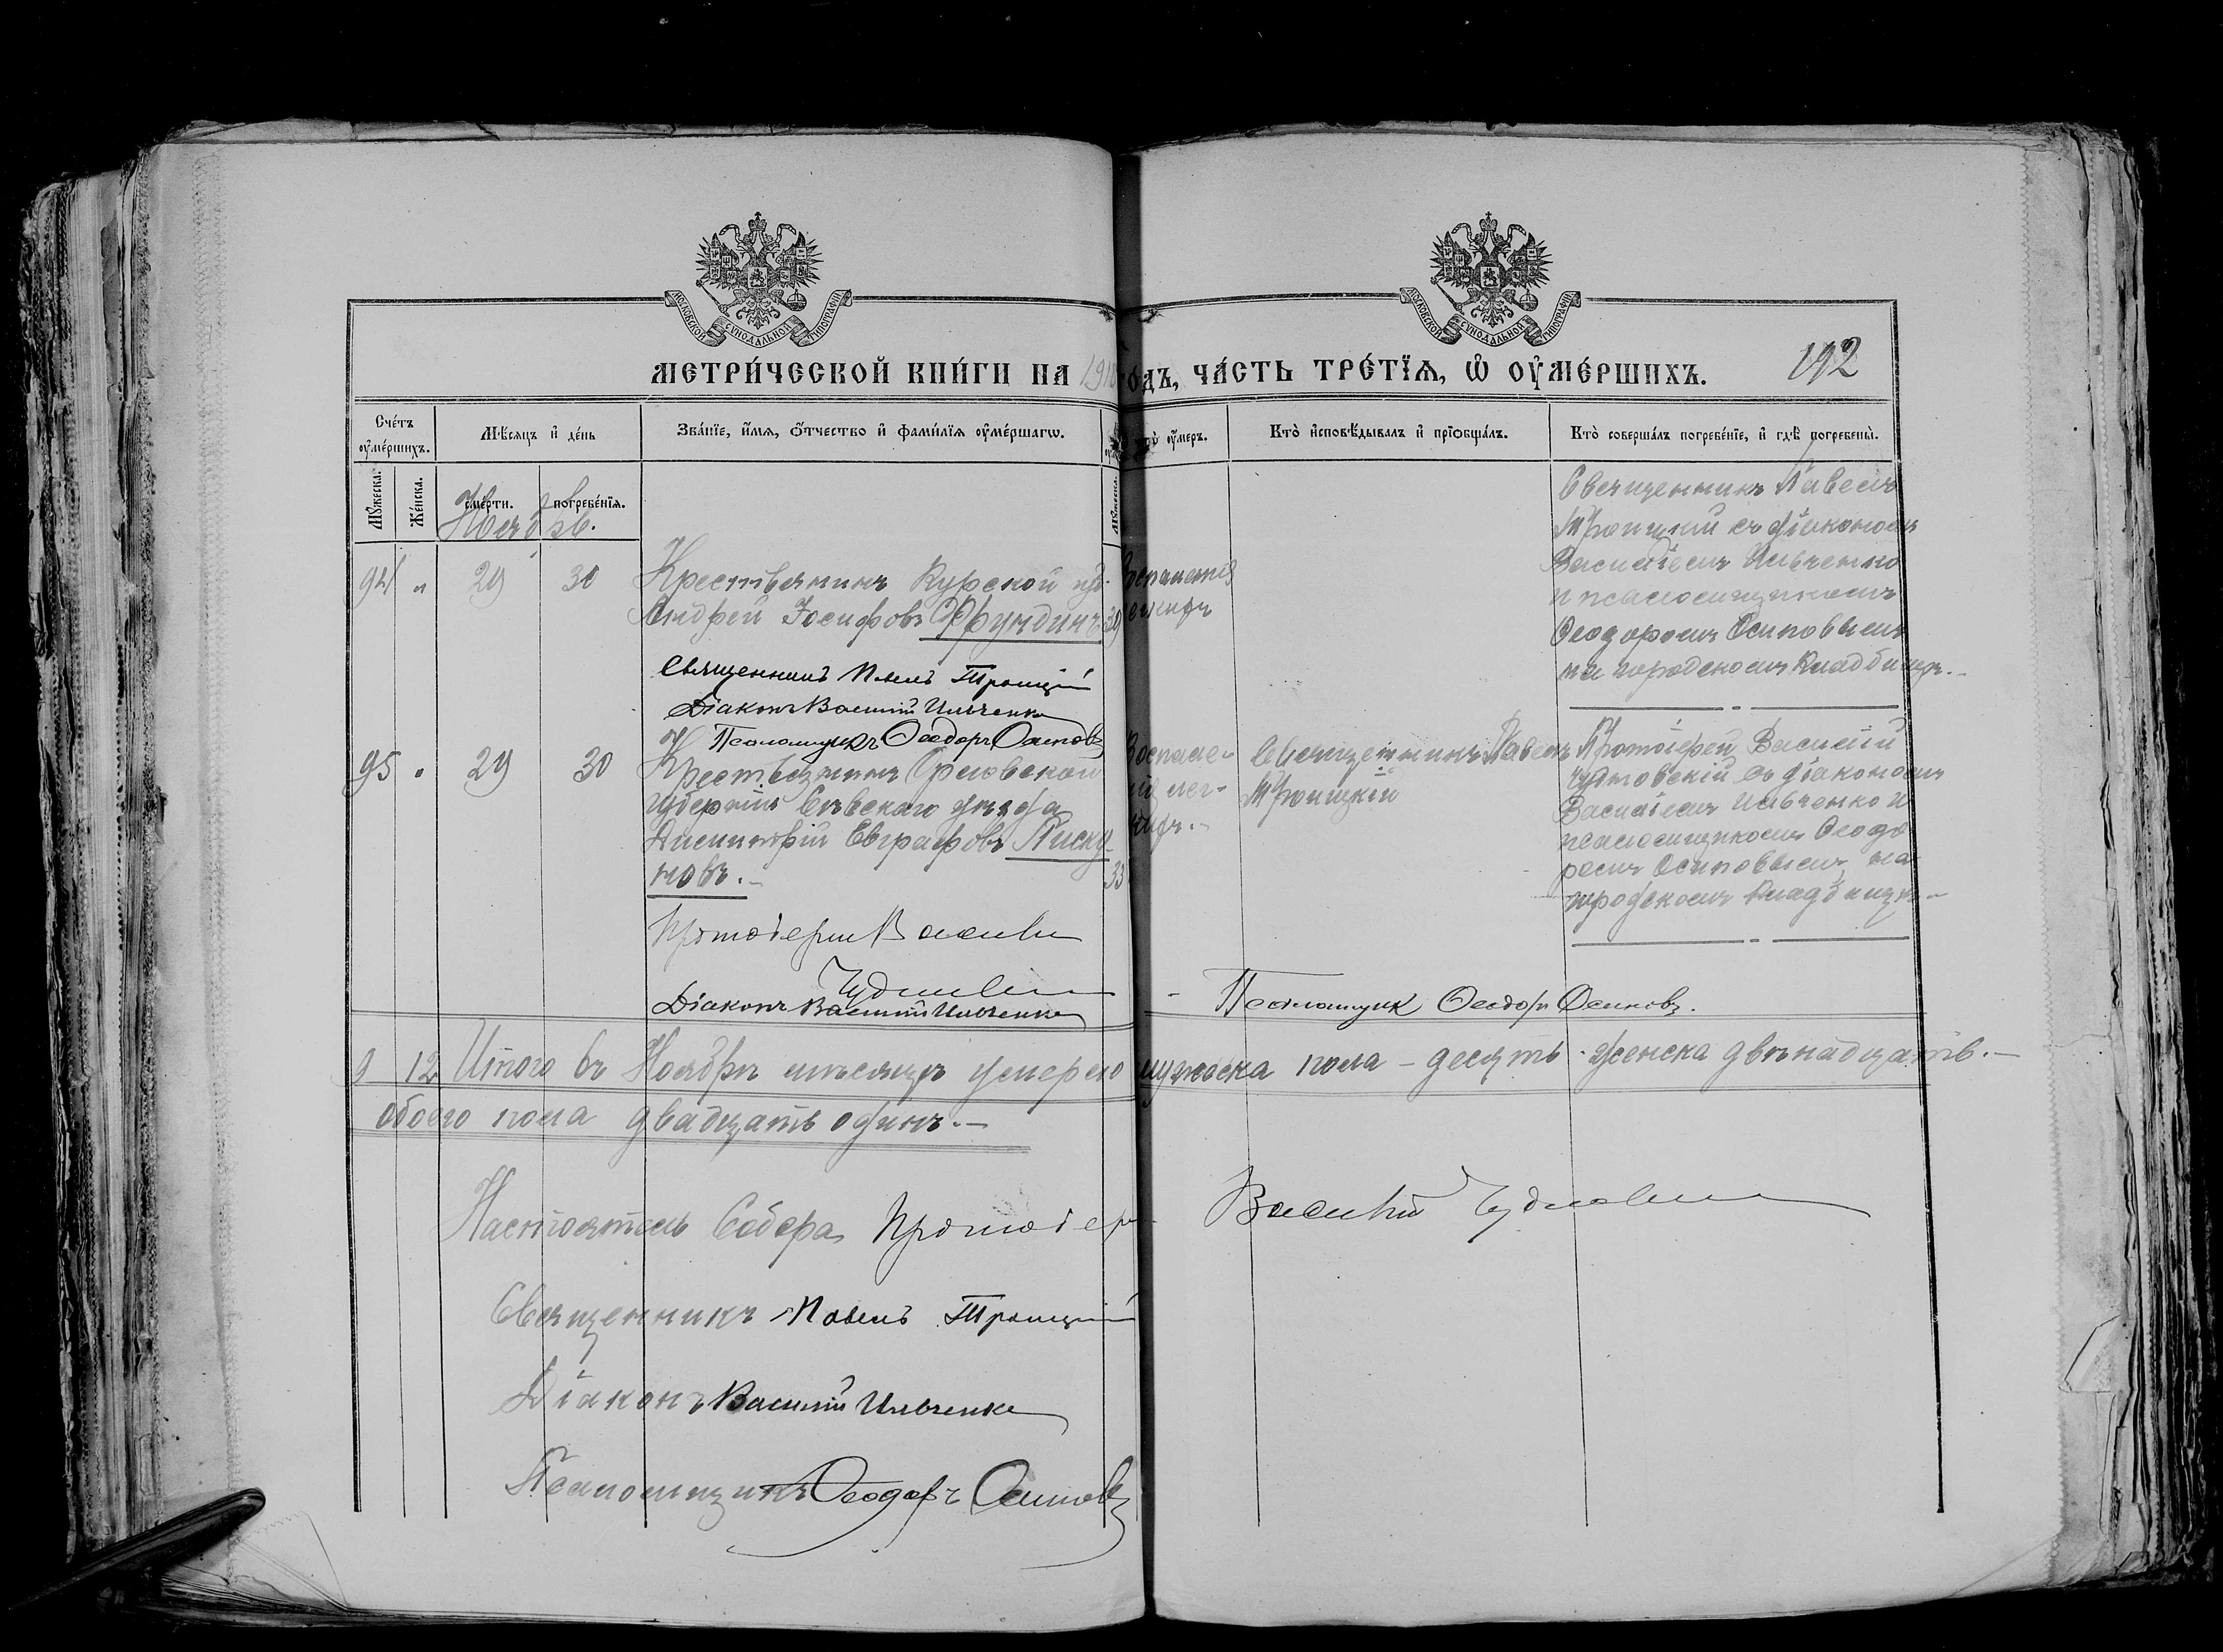 МОСКОВСКОЙ СУНОДАЛЬНОЙ ТИПОГРАФІИ
МОСКОВСКОЙ СУНОДАЛЬНОЙ ТИПОГРАФІИ
МЕТРИ́ЧЕСКОЙ КНИ́ГИ НА 191 го́дъ, ЧА́СТЬ ТРЕ́ТЇѦ, Ѡ҆ ОУ҆МЕ́РШИХЪ.
192
Сче́тъ оу҆ме́ршихъ.
Мѣ́сяцъ и҆ де́нь
Зва́нїе, и҆́мѧ, ѻ҆́тчество и҆ фами́лїѧ оу҆ме́ршагѡ.
оу҆́меръ.
Кто̀ и҆сповѣ́дывалъ и҆ прїѻбща́лъ.
Кто̀ соверша́лъ погребе́нїе, и҆ гдѣ̀ погребены̀.
Мꙋ́жеска.
Же́нска.
сме́рти.
погребе́нїѧ.
Мꙋ́жеска.
Ноябрь.
94 " 29 30
Крестьянинъ Курской губ.
Андрей Іосифовъ
39
Воспаленія
Священникъ Павелъ
Троицкій съ діакономъ
Василіемъ Ильченко
и псаломщикомъ
Ѳеодоромъ Осиповымъ
на городскомъ кладбищѣ.-
Священникъ Павелъ Троицкій
Діаконъ Василій Ильченко
Псаломщикъ Ѳеодоръ Осиповъ
95 " 29 30
Крестьянинъ Орловской
губерніи Сѣвскаго уѣзда
Димитрій Евграфовъ Писку-
новъ.-
33
Воспале-
нія лег-
кихъ.-
Священникъ Павелъ
Троицкій
Протоіерей Василій
Чудновскій съ діакономъ
Василіемъ Ильченко и
псаломщикомъ Ѳеодо
ромъ Осиповымъ, на
городскомъ кладбищѣ-
Протоіерей Василій
Чудновскій
Діаконъ Василій Ильченко
- Псаломщик Ѳеодоръ Осиповъ.
9 12 Итого въ Ноябрѣ мѣсяцѣ умерло мужеска пола - десять женска двѣнадцать.-
обоего пола двадцать одинъ.-
Настоятель Собора Протоіерей Василій Чудновскій
Священникъ Павелъ Троицкій
Діаконъ Василій Ильченко
Псаломщикъ Ѳеодоръ Осиповъ